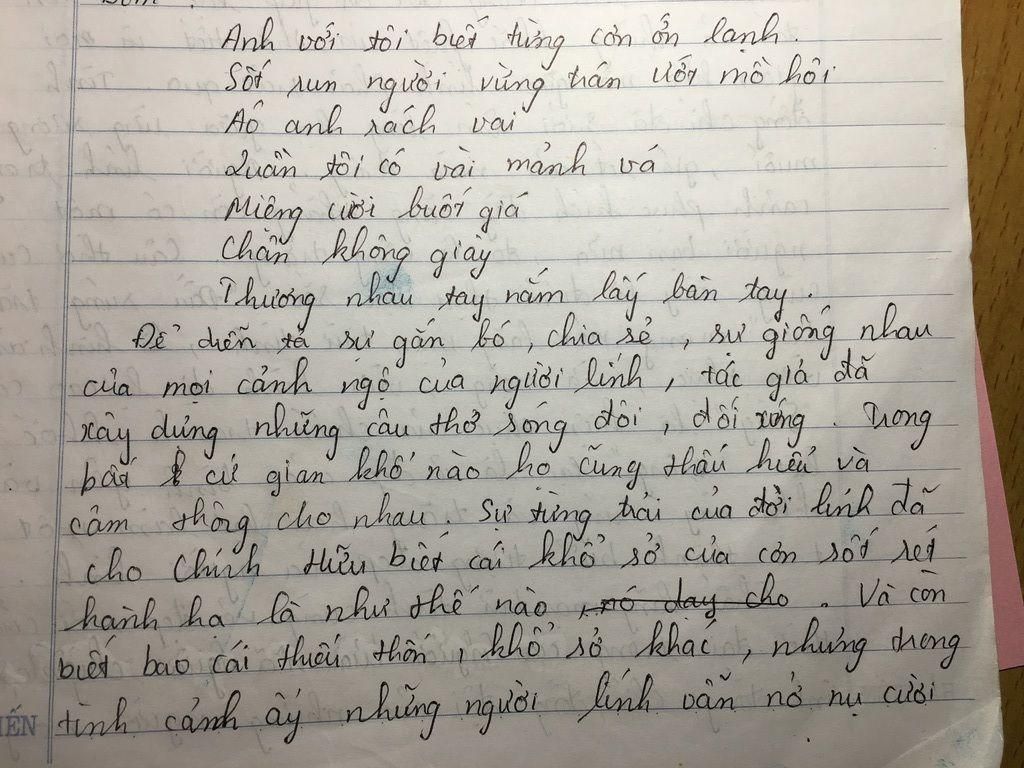 Anh với tôi biết từng cơn ớn lạnh.
Sốt run người vừng trán ướt mồ hôi
Aó anh rách vai
Quần tôi có vài mảnh vá
Miệng cười buốt giá
Chân không giày
Thương nhau tay nắm lấy bàn tay.
Để diễn tả sự gắn bó, chia sẻ, sự giống nhau
của mọi cảnh ngộ của người lính, tác giả đã
xây dựng những câu thơ sóng đôi, đối xứng. Trong
bất cứ gian khổ nào họ cũng thấu hiểu và
cảm thông cho nhau. Sự từng trải của đời lính đã
cho Chính Hữu biết cái khổ sở của cơn sốt rét
hành hạ là như thế nào nó dạy cho. Và còn
biết bao cái thiếu thốn, khổ sở khác, nhưng trong
tình cảnh ấy những người lính vẫn nở nụ cười
IẾN